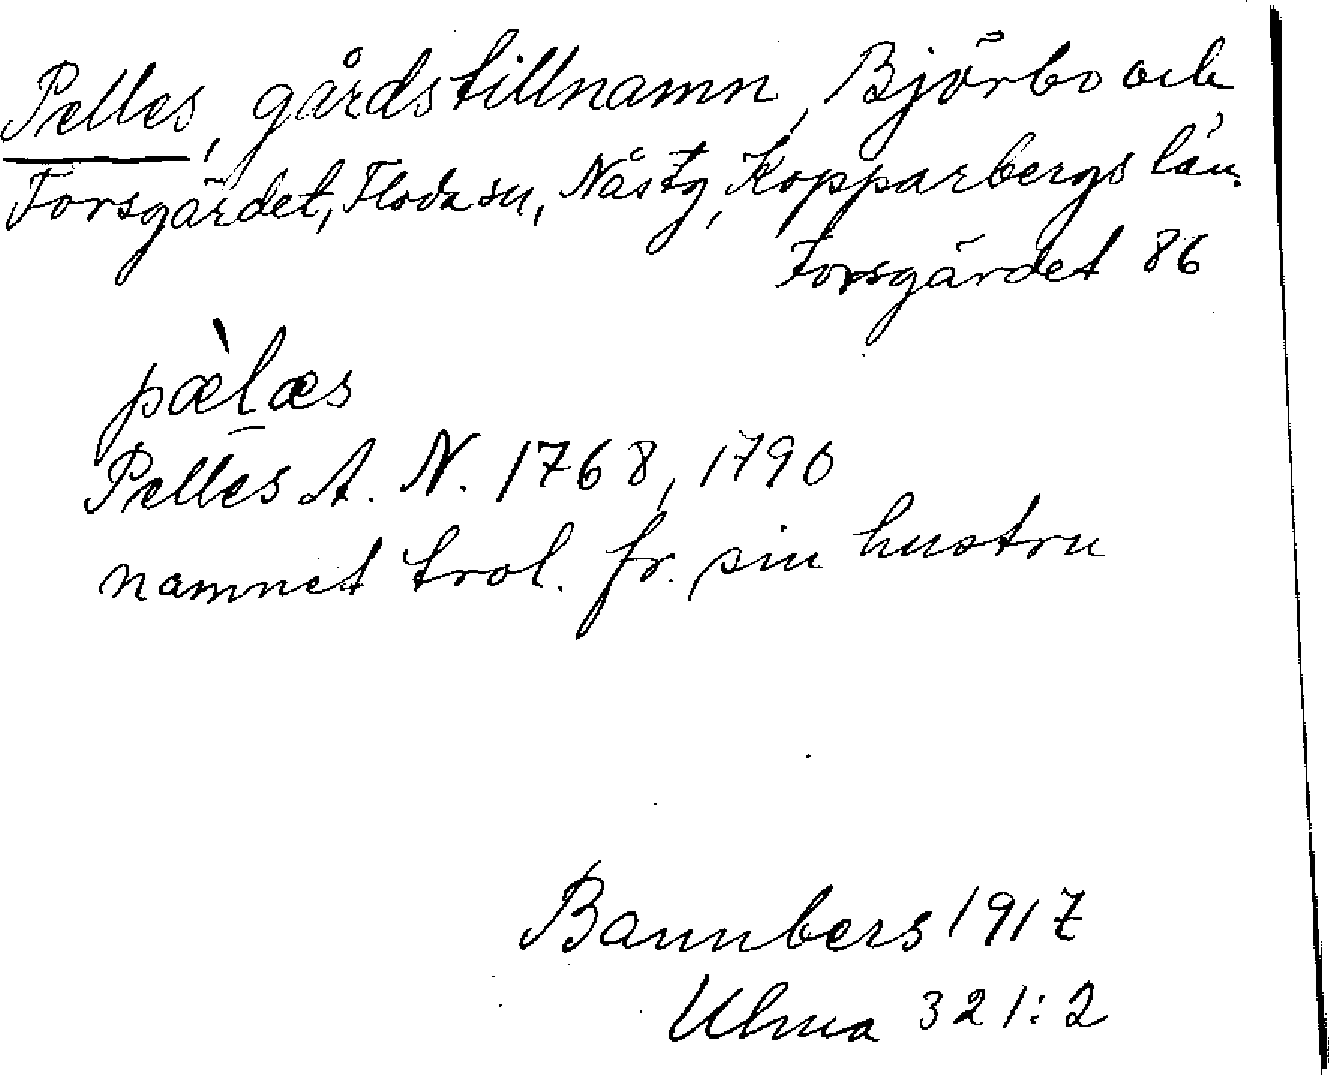 Pelles, gårdstillnamn, Björbo och
Forsgärdet, Floda sn, Nås tg, Kopparbergs län.
Forsgärdet 86
pæ̀læs
Pelles A. N. 1768, 1790
namnet trol. fr. sin hustru
Bannbers 1917
Ulma 321:2